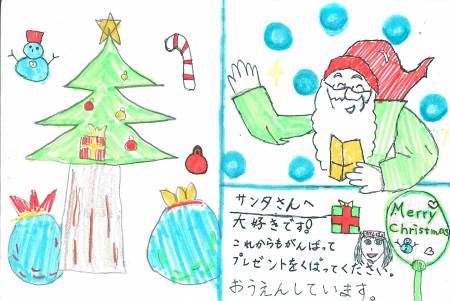 サンタさんへ
大好きです!
これからもがんばって
プレゼントをくばってください。
おうえんしています
Merry
Christmas